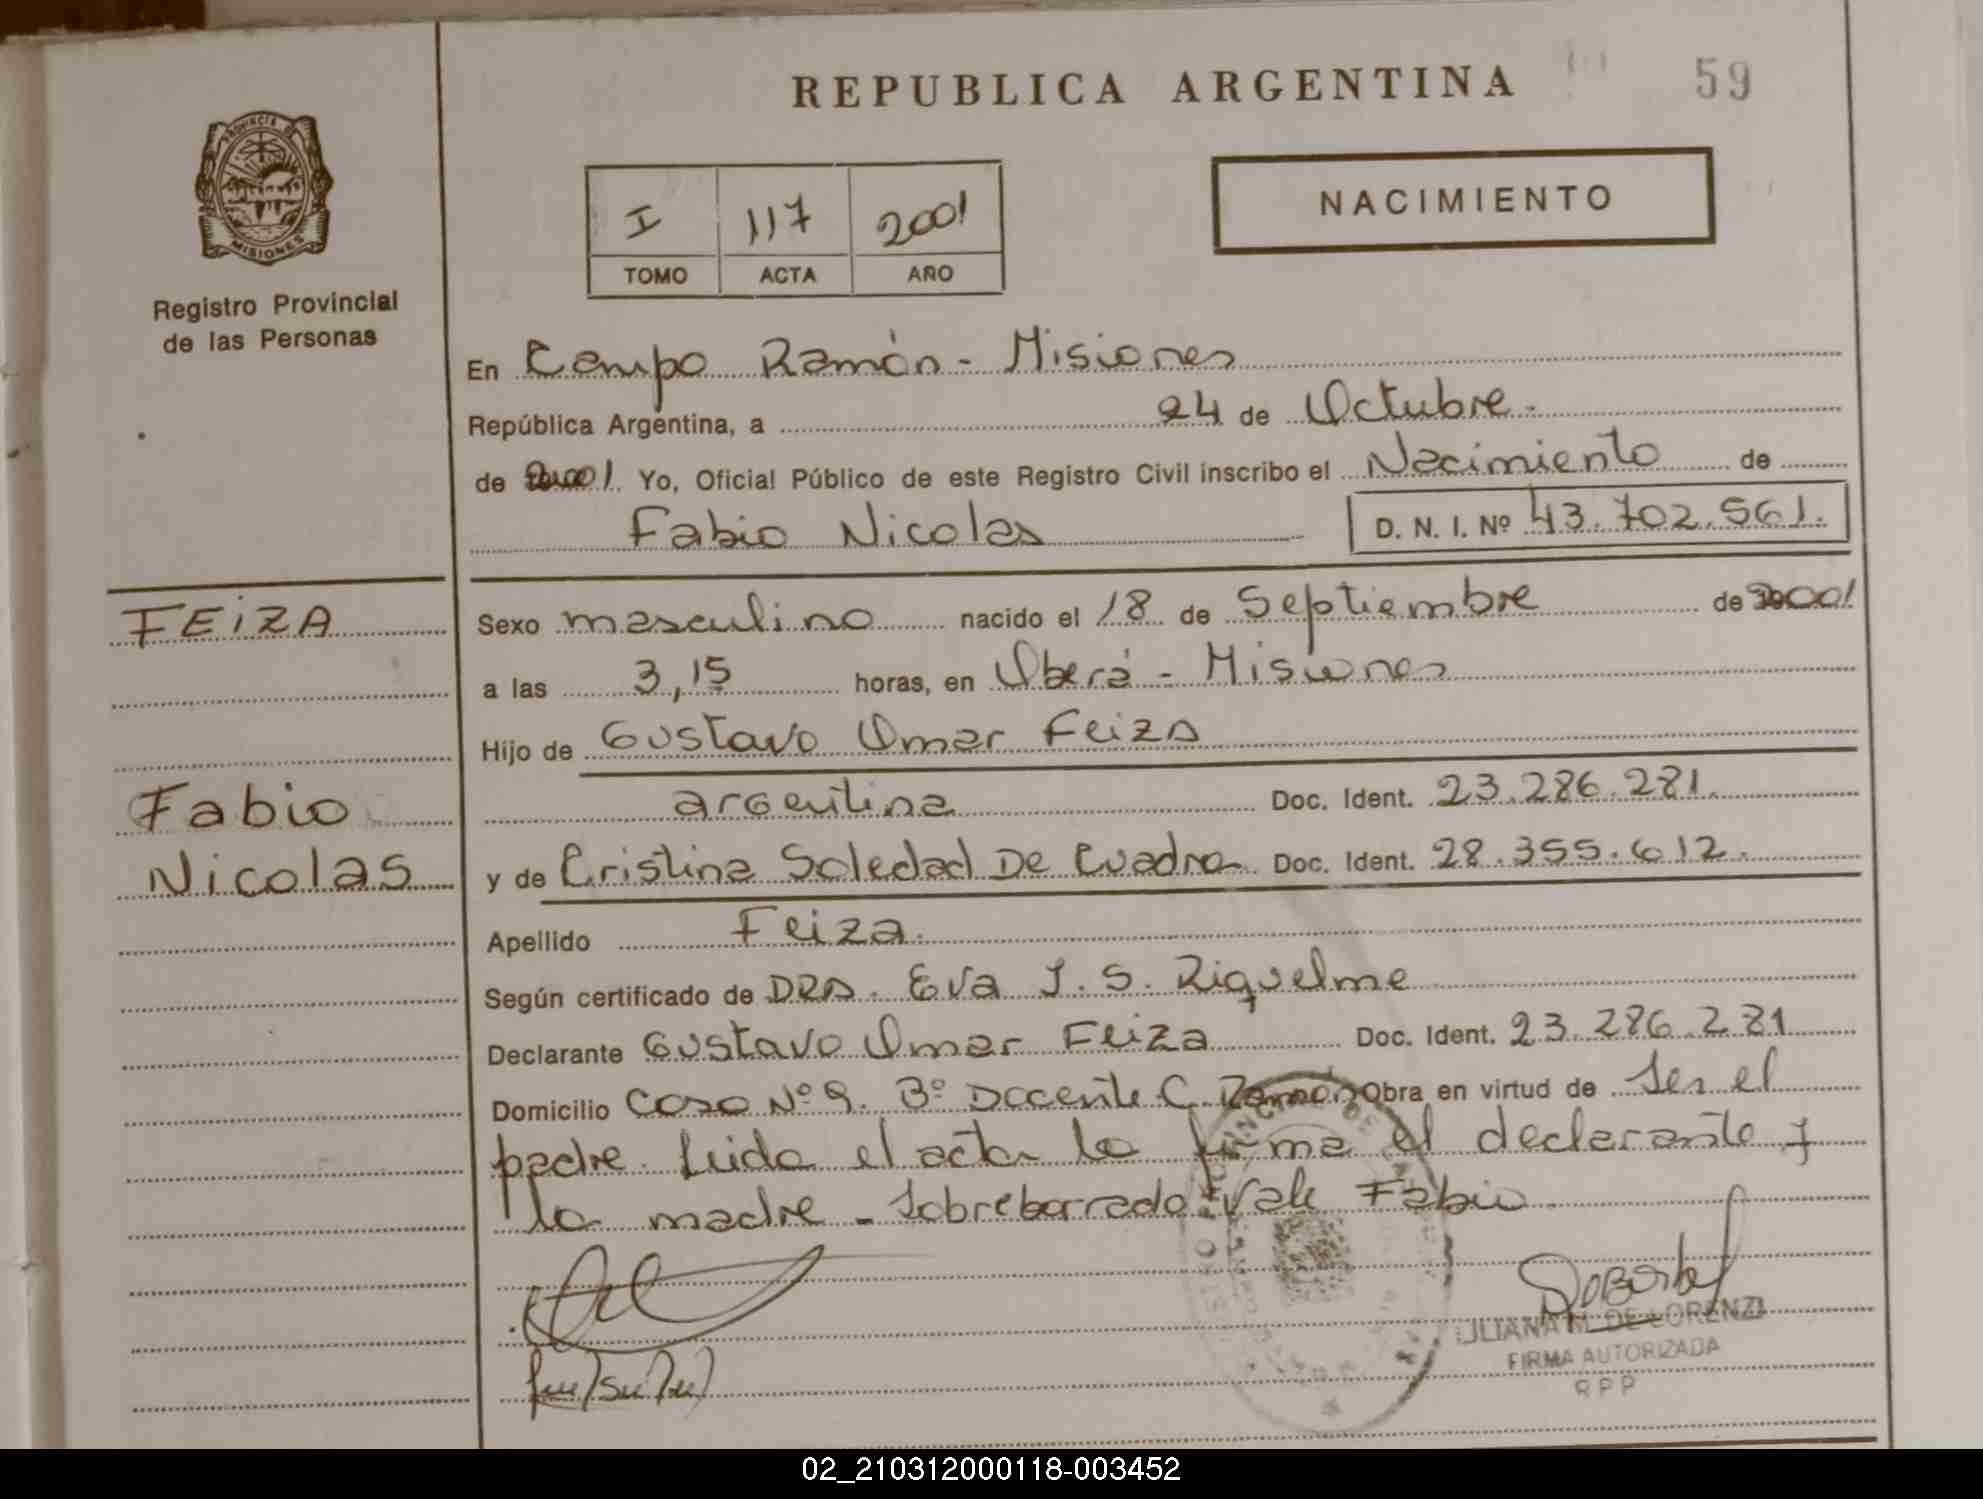 REPUBLICA ARGENTINA
59
PROVINCIA DE
MISIONES
Registro Provincial
de las Personas
I 117 2001
TOMO ACTA AÑO
NACIMIENTO
En Campo Ramón - Misiones
República Argentina, a 24 de Octubre.
de 2001. Yo, Oficial Público de este Registro Civil inscribo el Nacimiento de
Fabio Nicolas D. N. I. Nº 43.702.561.
FEiZA
Fabio
Nicolas
Sexo masculino nacido el 18 de Septiembre de 2001
a las 3,15 horas, en Oberá - Misiones
Hijo de Gustavo Omar Feiza
argentina Doc. Ident. 23.286.281.
y de Cristina Soledad De Cuadra Doc. Ident. 28.355.612.
Apellido Feiza.
Según certificado de DRA. Eva J. S. Riquelme
Declarante Gustavo Omar Feiza Doc. Ident. 23.286.281
Domicilio Casa Nº 9. Bº Docente C. Ramón Obra en virtud de Ser el
padre. Leida el acta la firma el declarante y
la madre - Sobreborrado: Vale Fabio
LILIANA M. DE LORENZI
FIRMA AUTORIZADA
RPP
02_210312000118-003452